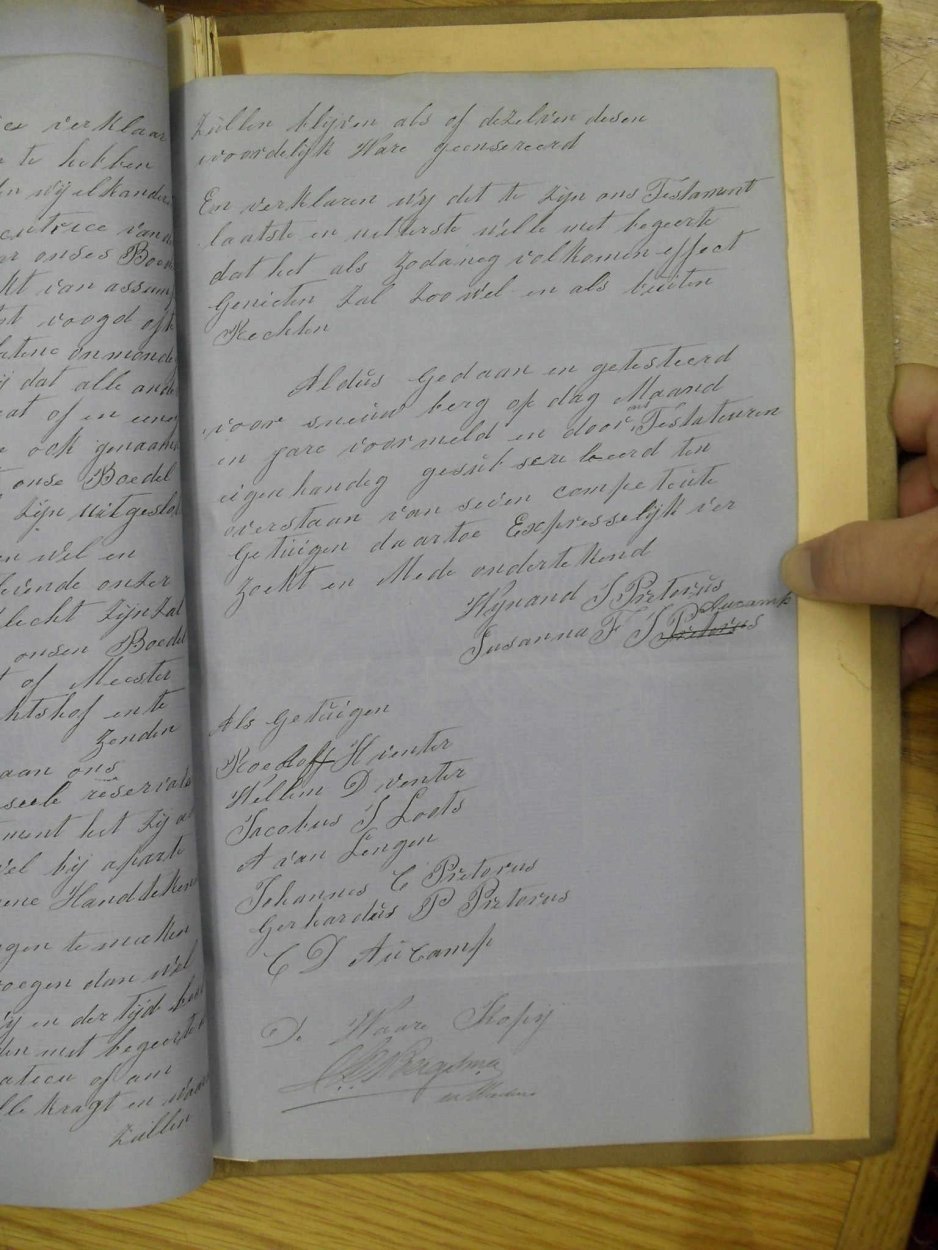 ce verklaar
te hebben
wij elkander
cutrice van
onses Boe
kt van assum
voogd of
latene onmonde
dat alle and
of en eene
ook genaam
onse Boedel
zijn uitgeslo
en wel en
levende onzer
slecht zijn zal
onsen Boedel
of Meester
htshof en te
zenden
aan ons
reserval
ment het zij a
wel bij aparte
Handteken
gen te maken
voegen dan wel
in der tijd
met begeerte
of aan
kragt en waar
Zullen
Zullen blyven als of dezelven desen
woordelijk Hare geensereerd
En verklaren wij det te zijn ons Testament
laatste en uiterste wille met begeerte
dat het als zodaneg volkomen effect
Genieten zal zoo wel en als buiten
Rechten
Aldus Gedaan en getesteerd
voor sneuw berg op dag Maand
en jare voormeld en door ons Testateuren
eigenhandeg gesubscrebeerd ten
overstaan van seven competente
Getuigen daartoe Expresselijk ver
zoekt en Mede ondertekend
Wynand S Pretorius
Susanna F S Pretorius Aucamp
Als Getuigen
Roedoff H venter
Wellem D venter
Jacobus S Loots
A van Lengen
Johannes C Pretorus
Gerhardus P Pretorus
C D Aucamp
De Waare Kopij